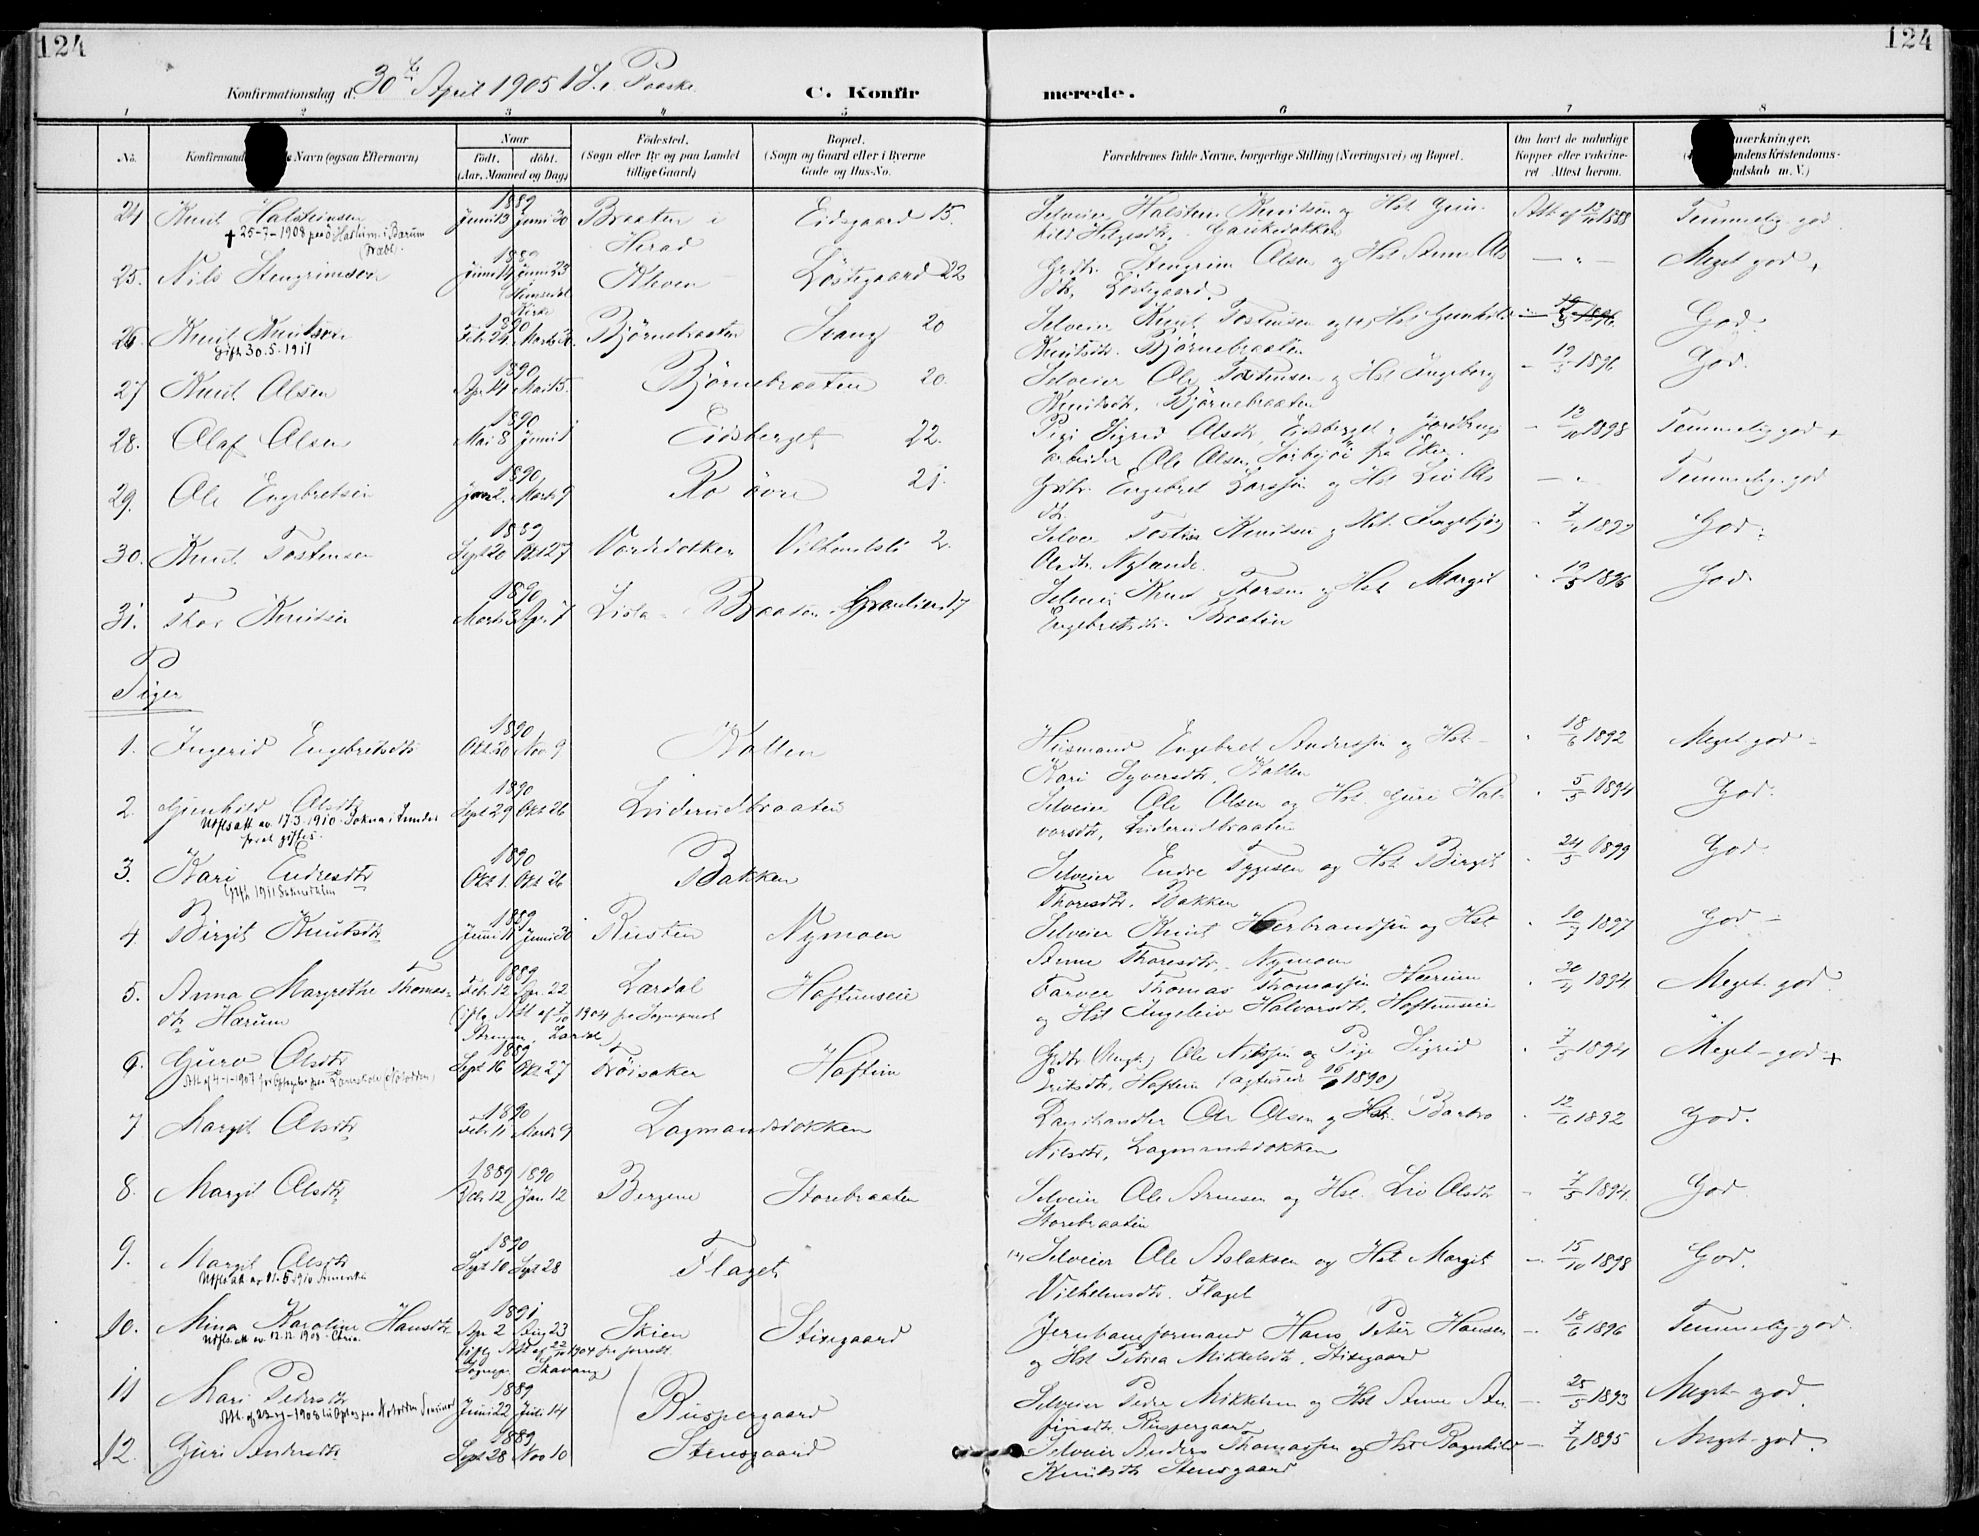 124
124
Konfirmationsdag d. 30te April 1905 1 S. e. Paaske
C. Konfir merede.
1 2 3 4 5 6 7 8
No. Konfirmand Navn (ogsaa Efternavn) Naar født. døbt. (Aar, Maaned og Dag) Fødested. (Sogn eller By og paa Landet tillige Gaard) Bopæl. (Sogn og Gaard eller i Byerne Gade og Hus-No.
Forældrenes fulde Navne, borgerlige Stilling (Næringsvei) og Bopæl. Om havt de naturlige Kopper eller vaccineret. Attest herom. mærkninger. ndens Kristendoms- ndskab m. V.)
24 Knut Halsteinsen 1889 Juni 13 Juni 30 Braaten i Herad Eidsgaard 15. Selveier Halsten Knutsen og Hst Gunhild Helgesdtr. 1888 Temmelig god.
† 25-7-1908 paa Haslum i Bærum
25. Nils Stengrimsen 1889 Juni 14 Juni 23 Kleven Løstegaard 22 Grdbr. Stengrim Olsen og Hst Anne Olsdtr, Løstegaard. — „ — Meget god.
Hemsedal Kirke
26. Knut Knutsen 1890 Feb 24 Marts Bjørnebraaten 20 Selveier Knut Tostensen og Hst Gunhild Knutsdtr. Bjørnebraaten 1896 God.
Gift 30.5.1911
27 Knut Olsen 1890 Apr 14 Mai 15. Bjørnebraaten 20. Selveier Ole Tostensen og Hst Ingeborg Knutsdtr. Bjørnebraaten 19/5 1896 God.
28. Olaf Olsen 1890 Mai 8 Juni 1 Eidsberget 22. Pige Sigrid Olsdtr, Eidsberget og Jordbrugsarbeider Ole Olsen fra Eker. 1898 Temmelig god +
29. Ole Engebretsen 1890 Jan 2. Marts 9 Ro øvre 21. Grdbr. Engebret Larssøn og Hst Liv Olsdtr. — „ Temmelig god
30. Knut Tostensen 1889 Sept 20 Okt 27 Vordedokken 2. Selveier Tosten Knutsen og Hst. Ingebjør Olsdtr. Nylande. 1892 God.
31. Thor Knutsen 1890 Marts 3 Apr 7 Lista Braaten 17 Selveier Knut Thorsen og Hst Margit Engebretsdtr. Braaten 19/5 1896 God.
Piger
1. Ingerid Engebretsdtr 1890 Okt 20 Nov 9 Kolten Husmand Engebret Anderssøn og Hst Kari Syversdtr, Kolten 18/6 1892 Meget god
2. Gunhild Olsdtr 1890 Sept 29 Okt 26 Liderudbraaten Selveier Ole Olsen og Hst. Guri Halvorsdtr, Liderudbraaten 5/5 1894 God.
Utfl.att av 17.3.1910 Sokna
for at giftes.
3. Kari Endresdtr 1890 Okt 1. Okt 26 Bakken Selveier Endre Tygesen og Hst Birgit Thoresdtr. Bakken 24/5 1899 God.
Gift 1911
4 Birgit Knutsdtr 1889 Juni 11 Juni 30 Rusten Nymoen Selveier Knut Herbrandsøn og Hst Anne Thoresdtr. Nymoen 10/7 1897 God.
5. Anna Margrethe Thomasdtr Hærum 1889 Feb. 12 Apr. 22 Lardal Haftunseie Farver Thomas Thomassøn Hærum og Hst Ingeleiv Halvorsdtr, Haftunseie 1894 Meget god.
(iflg Att af 1904 fra Sogneprest Lardal)
6. Guro Olsdtr 1889 Sept 16 Okt 27 Trøisaker Haftun Grdbr. (Ungk.) Ole Nilssøn og Pige Sigrid Eriksdtr. Haftun 1890) 7/5 1894 Meget god +
7 Margit Olsdtr 1890 Feb 11 Marts 9 Lagmandsdokken Landhandler Ole Olsen og Hst. Barbro Nilsdtr, Lagmandsdokken 12/6 1892 God.
8. Margit Olsdtr 1889 Dcbr. 12 1890 Jan 12 Bergene Storebraaten Selveier Ole Arnesen og Hst. Liv Olsdtr Storebraaten 7/5 1894. God.
9. Margit Olsdtr 1890 Sept 10 Sept 28 Flaget Selveier Ole Aslaksen og Hst Margit Vilhelmsdtr. Flaget 15/10 1898 God.
Utfl.att av 5 1910 Amerika
10. Mina Karoline Hansdtr 1891 Apr 2 Aug 23 Skien Stingaard Jernbaneformand Hans Peter Hansen og Hst Petrea Mikkelsdtr. 18/6 1896 Temmelig god.
Utfl. att av 12.12 1908 Chria
(iflg Att af 1904 fra
11 Mari Pedersdtr 1889 Juni 22 Juli 14 Ruspergaard Selveier Peder Mikkelsen og Hst Anne Arnfinsdtr. Ruspergaard 25/5 1893 Meget god.
12. Guri Andersdtr 1889 Sept 28 Nov 10 Stensgaard Selveier Anders Thomassøn og Hst Ragnhild Knutsdtr Stensgaard 7/6 1895 Meget god.